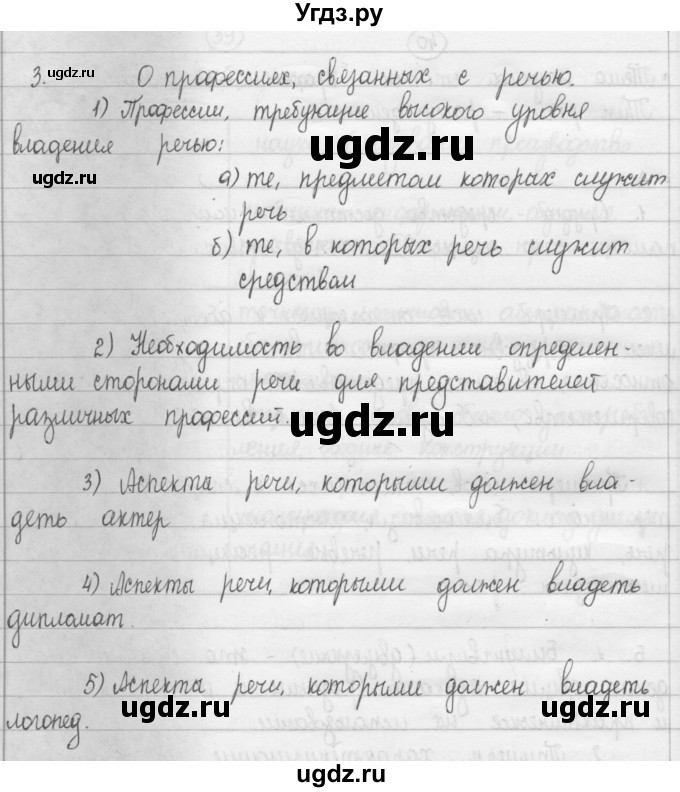 Угдз.ру
3. О профессиях, связанных с речью.
1) Профессии, требующие высокого уровня
владения речью:
а) те, предметом которых служит
речь
б) те, в которых речь служит
средствам
2) Необходимость во владении определен-
ными сторонами речи для представителей
различных профессий.
3) Аспекты речи, которыми должен вла-
деть актер
4) Аспекты речи, которыми должен владеть
дипломат.
5) Аспекты речи, которыми должен владеть
логопед.
ugdz.ru
ugdz.ru
ugdz.ru
ugdz.ru
ugdz.ru
ugdz.ru
ugdz.ru
ugdz.ru
ugdz.ru